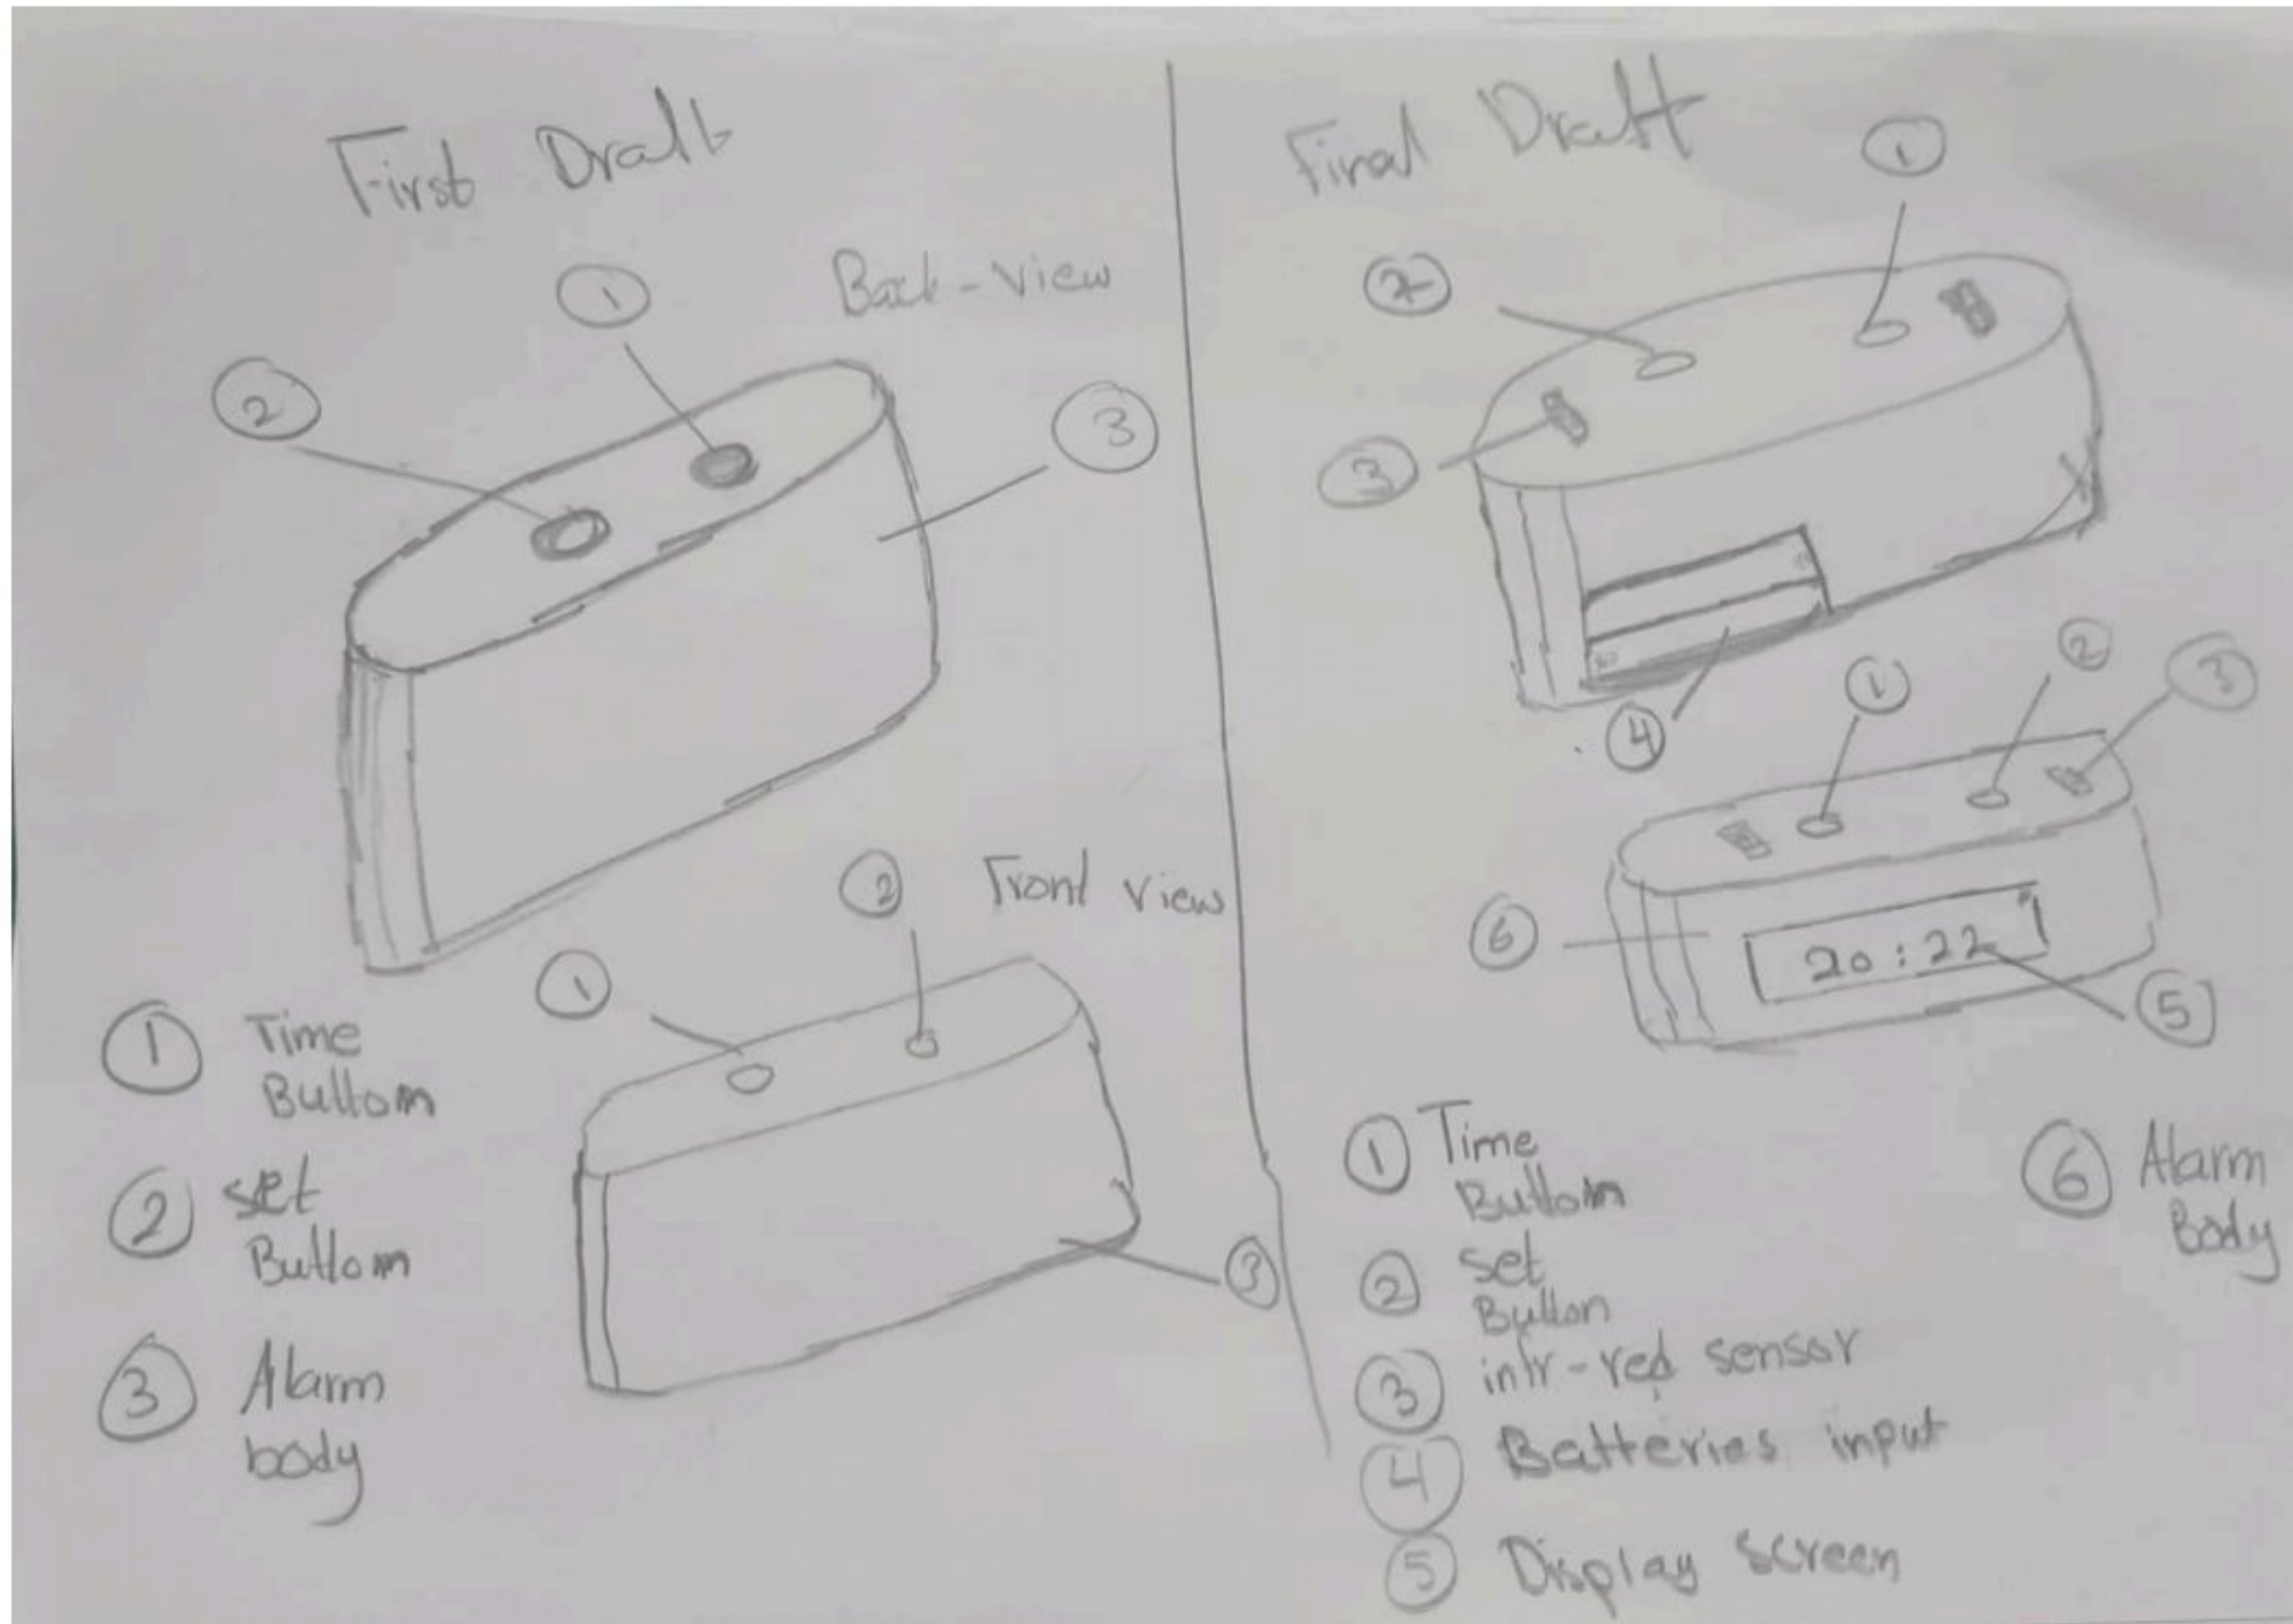 First Draft
Back-view
1
2
3
2
Front view
1
3
1 Time
Buttom
2 set
Buttom
3 Alarm
body
Final Draft
1
2
3
4
1
2
3
6
20:22
5
1 Time
Buttom
2 set
Button
3 infr-red sensor
4 Batteries input
5 Display screen
6 Alarm
Body